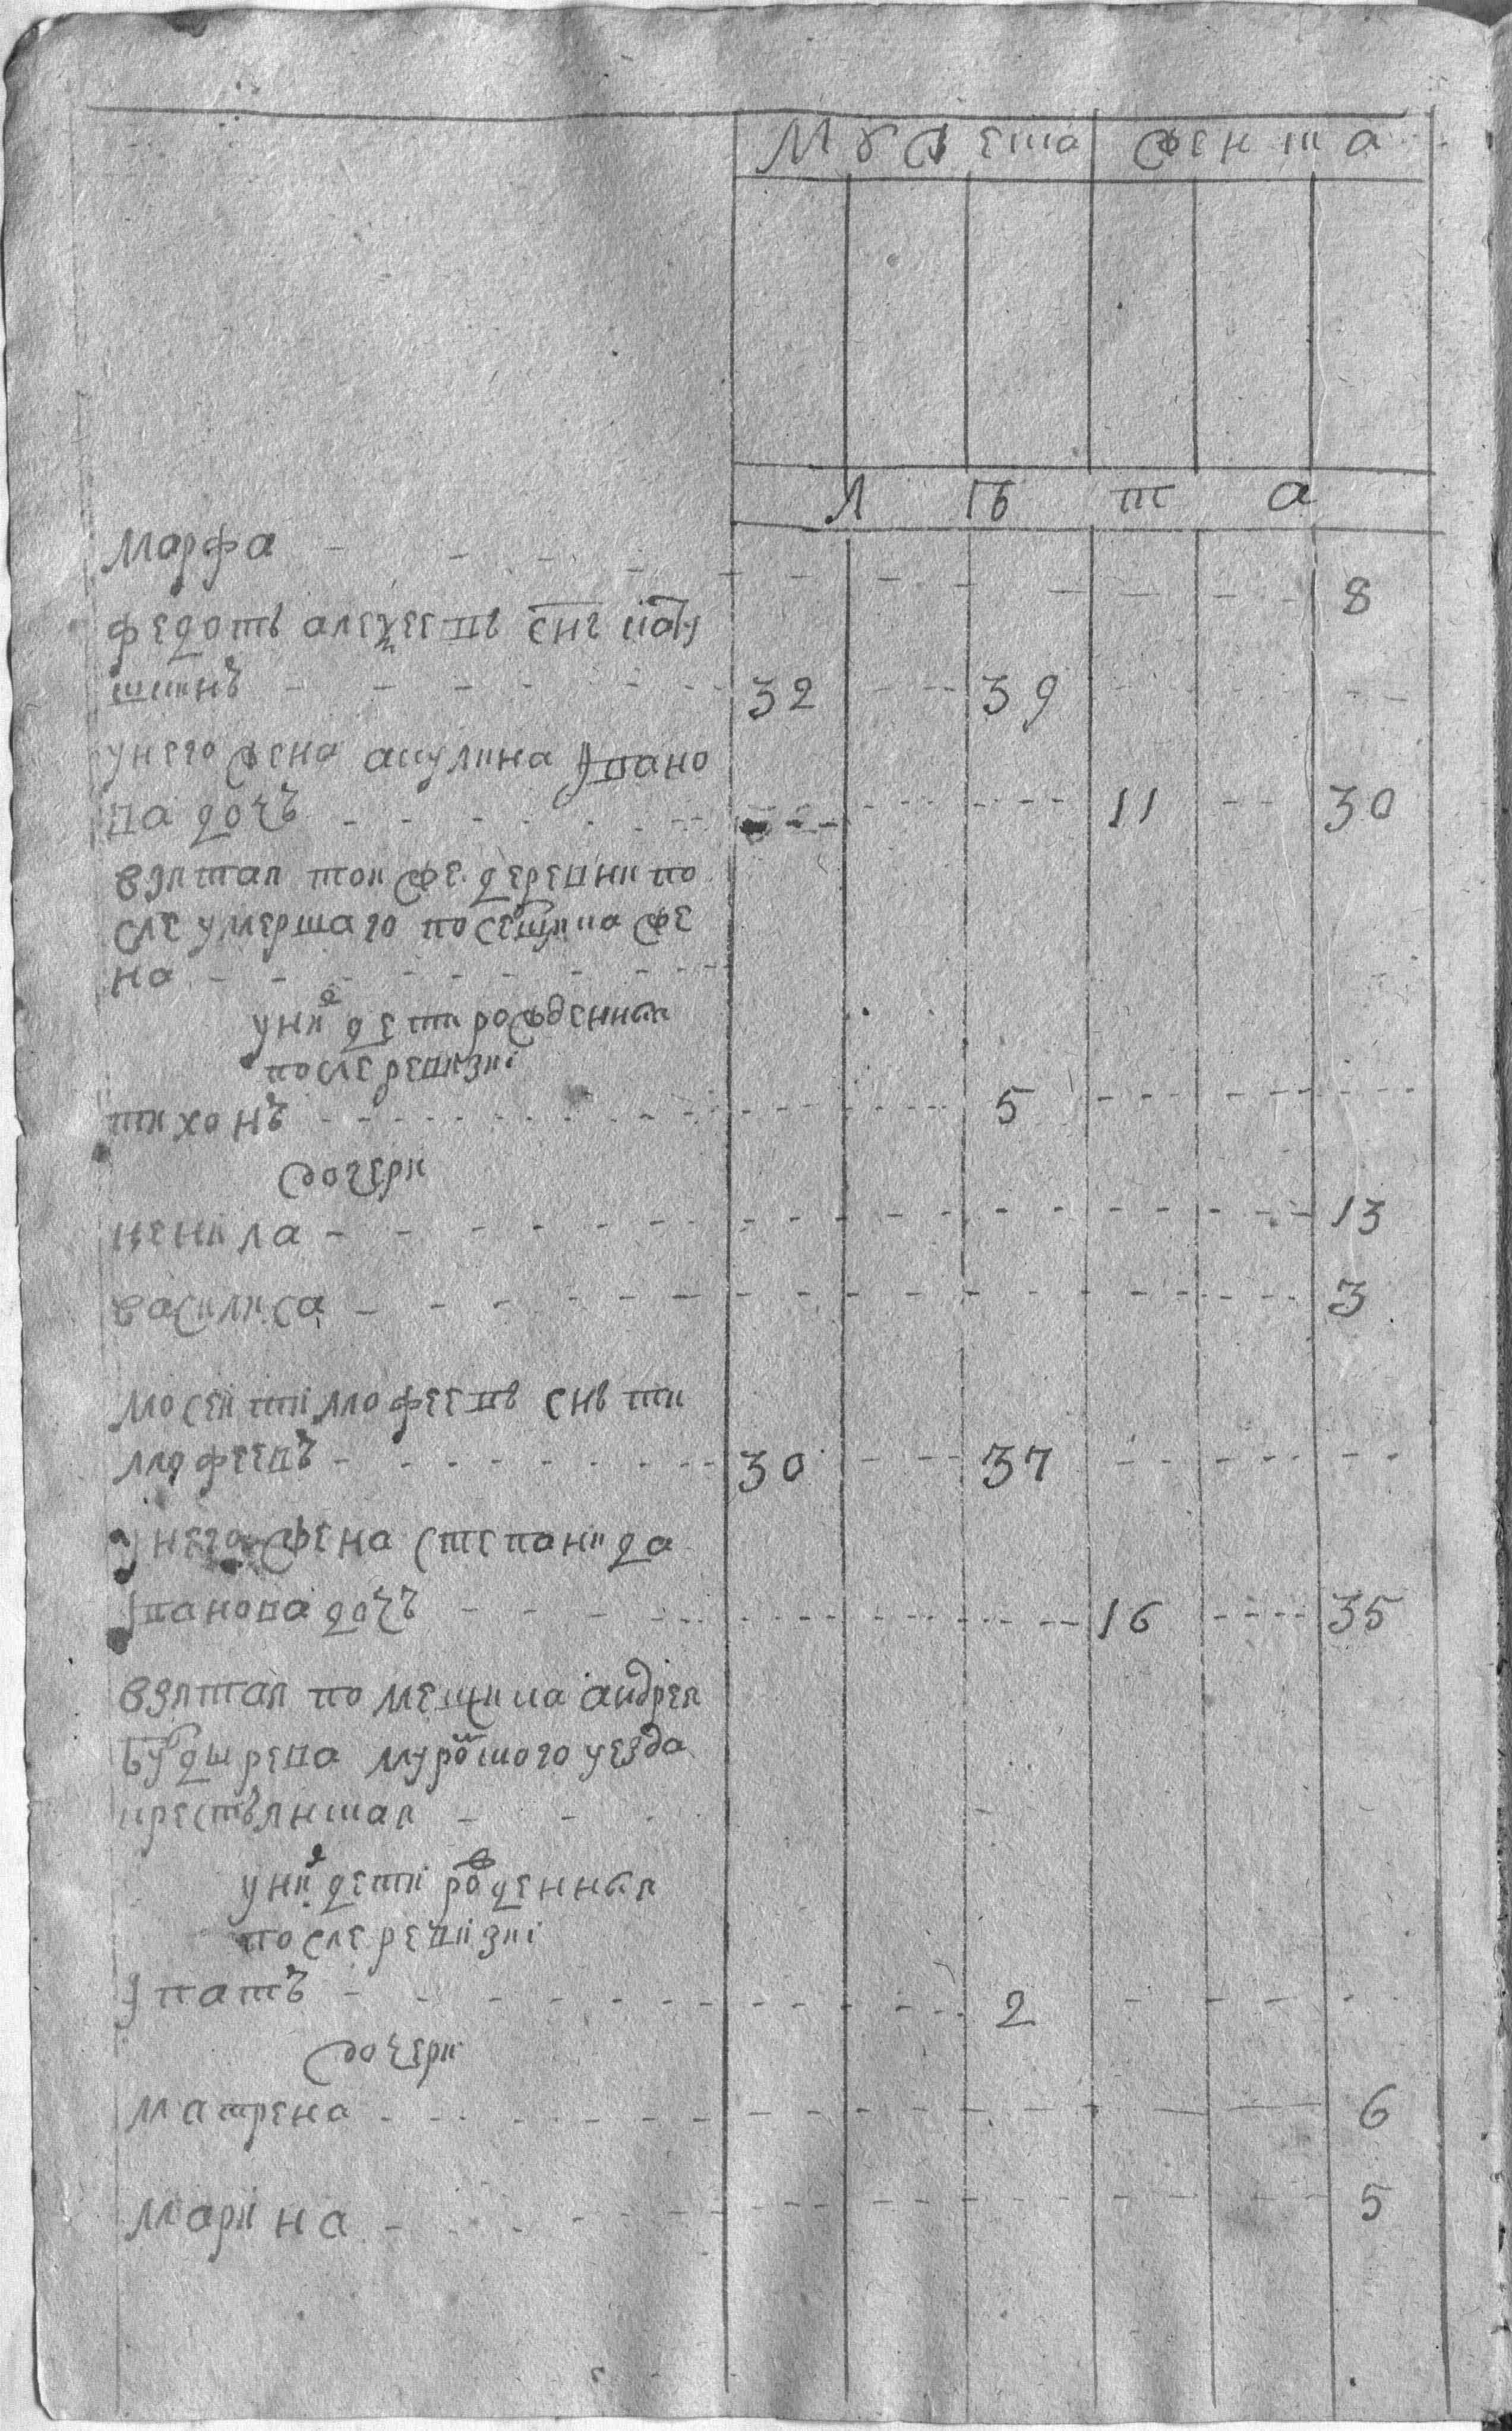 мужеска женска
лѣта
марфа 8
федотъ алеѯеевъ снъ
шкинъ 32 39
унего жена акулина Iвано
ва дочь 11 30
взятая тои же деревни по
сле умершаго помещика же
на
уние дети рожденныя
после ревизиi
тихонъ 5
дочери
ненила 13
василиса 3
мосеи тимофеевъ снъ ти
мофеевъ 30 37
унего жена степанида
Iванова дочь 16 35
взятая помещика андрея
муромского уезда
крестьянская
уние дети рожденныя
после ревизиi
Iпатъ 2
дочери
матрена 6
марина 5